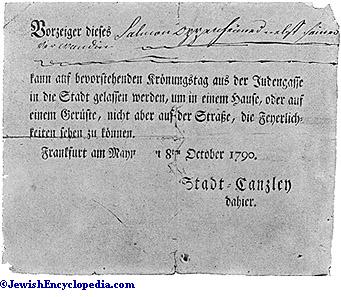 Vorzeiger dieses Salmon Oppenheimer nebst seinen
kann auf bevorstehenden Krönungstag aus der Judengasse
in die Stadt gelassen werden, um in einem Hause, oder auf
einem Gerüste, nicht aber auf der Straße, die Feyerlich-
keiten sehen zu können.
Frankfurt am Mayn 8ten October 1790.
Stadt-Canzley
dahier.
©JewishEncyclopedia.com